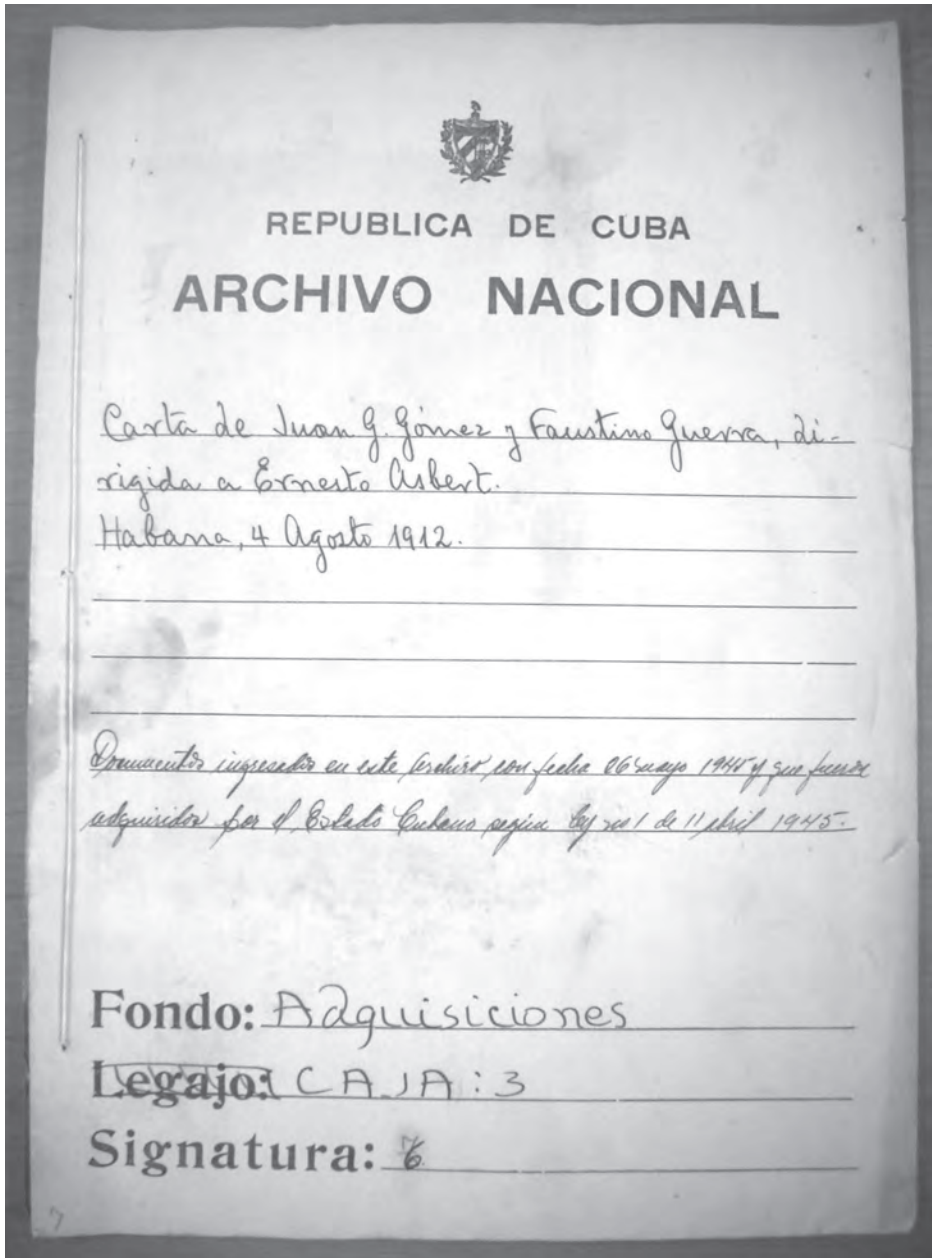 REPUBLICA DE CUBA
ARCHIVO NACIONAL
Carta de Juan G. Gómez y Faustino Guerra, di-
rigida a Ernesto Asbert.
Habana, 4 Agosto 1912.
Documentos ingresados en este Archivo con fecha mayo 1945 y que fueron
adquiridos por el Estado Cubano según ley no 1 de 11 abril 1945.
Fondo: Adquisiciones
Legajo: CAJA: 3
Signatura:
7